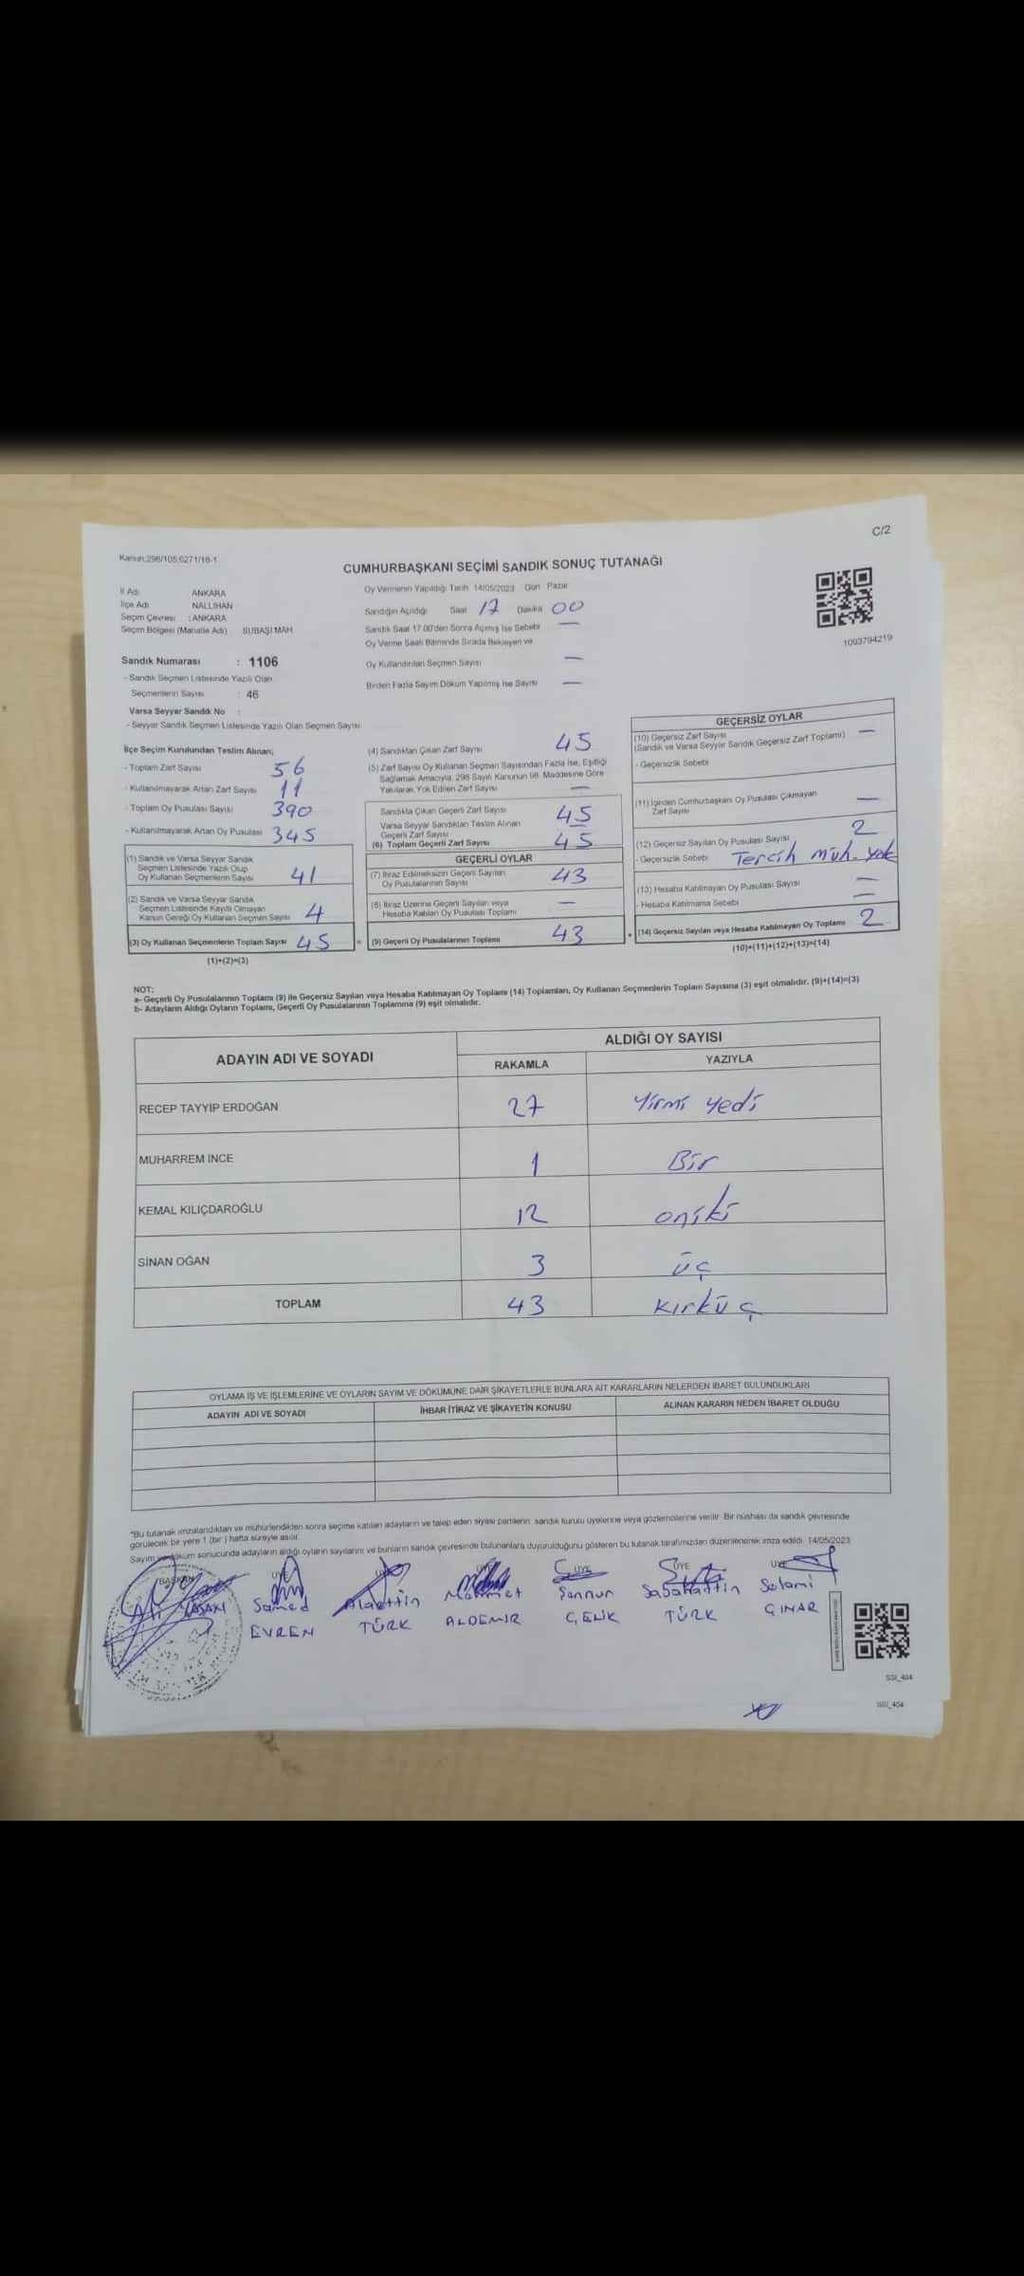 C/2
Kanun:298/105,6271/16-1
CUMHURBAŞKANI SEÇİMİ SANDIK SONUÇ TUTANAĞI
İl Adı ANKARA
İlçe Adı NALLIHAN
Seçim Çevresi : ANKARA
Seçim Bölgesi (Mahalle Adı) SUBAŞI MAH
Sandık Numarası : 1106
- Sandık Seçmen Listesinde Yazılı Olan
Seçmenlerin Sayısı : 46
Varsa Seyyar Sandık No :
- Seyyar Sandık Seçmen Listesinde Yazılı Olan Seçmen Sayısı
Oy Vermenin Yapıldığı Tarih 14/05/2023 Gün Pazar
Sandığın Açıldığı Saat 17 Dakika 00
Sandık Saat 17.00'den Sonra Açılmış İse Sebebi —
Oy Verme Saati Bitiminde Sırada Bekleyen ve
Oy Kullandırılan Seçmen Sayısı —
Birden Fazla Sayım Döküm Yapılmış İse Sayısı —
1093794219
İlçe Seçim Kurulundan Teslim Alınan;
- Toplam Zarf Sayısı 56
- Kullanılmayarak Artan Zarf Sayısı 11
- Toplam Oy Pusulası Sayısı 390
- Kullanılmayarak Artan Oy Pusulası 345
(1) Sandık ve Varsa Seyyar Sandık
Seçmen Listesinde Yazılı Olup
Oy Kullanan Seçmenlerin Sayısı 41
(2) Sandık ve Varsa Seyyar Sandık
Seçmen Listesinde Kayıtlı Olmayan
Kanun Gereği Oy Kullanan Seçmen Sayısı 4
(3) Oy Kullanan Seçmenlerin Toplam Sayısı 45
(1)+(2)=(3)
(4) Sandıktan Çıkan Zarf Sayısı 45
(5) Zarf Sayısı Oy Kullanan Seçmen Sayısından Fazla İse, Eşitliği
Sağlamak Amacıyla, 298 Sayılı Kanunun 98. Maddesine Göre
Yakılarak Yok Edilen Zarf Sayısı —
Sandıkta Çıkan Geçerli Zarf Sayısı 45
Varsa Seyyar Sandıktan Teslim Alınan
Geçerli Zarf Sayısı —
(6) Toplam Geçerli Zarf Sayısı 45
GEÇERLİ OYLAR
(7) İtiraz Edilmeksizin Geçerli Sayılan
Oy Pusulalarının Sayısı 43
(8) İtiraz Üzerine Geçerli Sayılan veya
Hesaba Katılan Oy Pusulası Toplamı —
= (9) Geçerli Oy Pusulalarının Toplamı 43
GEÇERSİZ OYLAR
(10) Geçersiz Zarf Sayısı —
(Sandık ve Varsa Seyyar Sandık Geçersiz Zarf Toplamı)
- Geçersizlik Sebebi
(11) İçinden Cumhurbaşkanı Oy Pusulası Çıkmayan
Zarf Sayısı —
(12) Geçersiz Sayılan Oy Pusulası Sayısı 2
- Geçersizlik Sebebi Tercih müh. yok
(13) Hesaba Katılmayan Oy Pusulası Sayısı —
- Hesaba Katılmama Sebebi —
+ (14) Geçersiz Sayılan veya Hesaba Katılmayan Oy Toplamı 2
(10)+(11)+(12)+(13)=(14)
NOT:
a- Geçerli Oy Pusulalarının Toplamı (9) ile Geçersiz Sayılan veya Hesaba Katılmayan Oy Toplamı (14) Toplamları, Oy Kullanan Seçmenlerin Toplam Sayısına (3) eşit olmalıdır. (9)+(14)=(3)
b- Adayların Aldığı Oyların Toplamı, Geçerli Oy Pusulalarının Toplamına (9) eşit olmalıdır.
ADAYIN ADI VE SOYADI ALDIĞI OY SAYISI
RAKAMLA YAZIYLA
RECEP TAYYİP ERDOĞAN 27 Yirmi yedi
MUHARREM İNCE 1 Bir
KEMAL KILIÇDAROĞLU 12 oniki
SİNAN OĞAN 3 üç
TOPLAM 43 kırküç
OYLAMA İŞ VE İŞLEMLERİNE VE OYLARIN SAYIM VE DÖKÜMÜNE DAİR ŞİKAYETLERLE BUNLARA AİT KARARLARIN NELERDEN İBARET BULUNDUKLARI
ADAYIN ADI VE SOYADI İHBAR İTİRAZ VE ŞİKAYETİN KONUSU ALINAN KARARIN NEDEN İBARET OLDUĞU
*Bu tutanak imzalandıktan ve mühürlendikten sonra seçime katılan adayların ve talep eden siyasi partilerin sandık kurulu üyelerine veya gözlemcilerine verilir. Bir nüshası da sandık çevresinde
görülecek bir yere 1 (bir ) hafta süreyle asılır.
Sayım ve döküm sonucunda adayların aldığı oyların sayılarını ve bunların sandık çevresinde bulunanlara duyurulduğunu gösteren bu tutanak tarafımızdan düzenlenerek imza edildi. 14/05/2023
BAŞKAN ÜYE ÜYE ÜYE ÜYE ÜYE ÜYE
Samed Alaettin Mehmet Şennur Sabahattin Selami
EVREN TÜRK ALDEMIR ÇELİK TÜRK ÇINAR
SSI_404
SSI_404